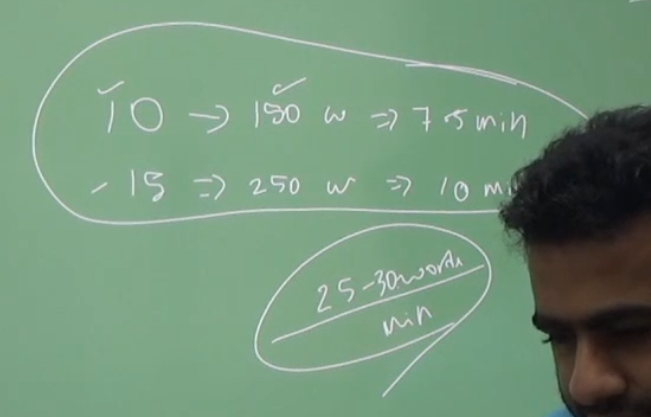 10 → 150 w ⇒ 7.5 min
15 ⇒ 250 w ⇒ 10
25-30 words
min